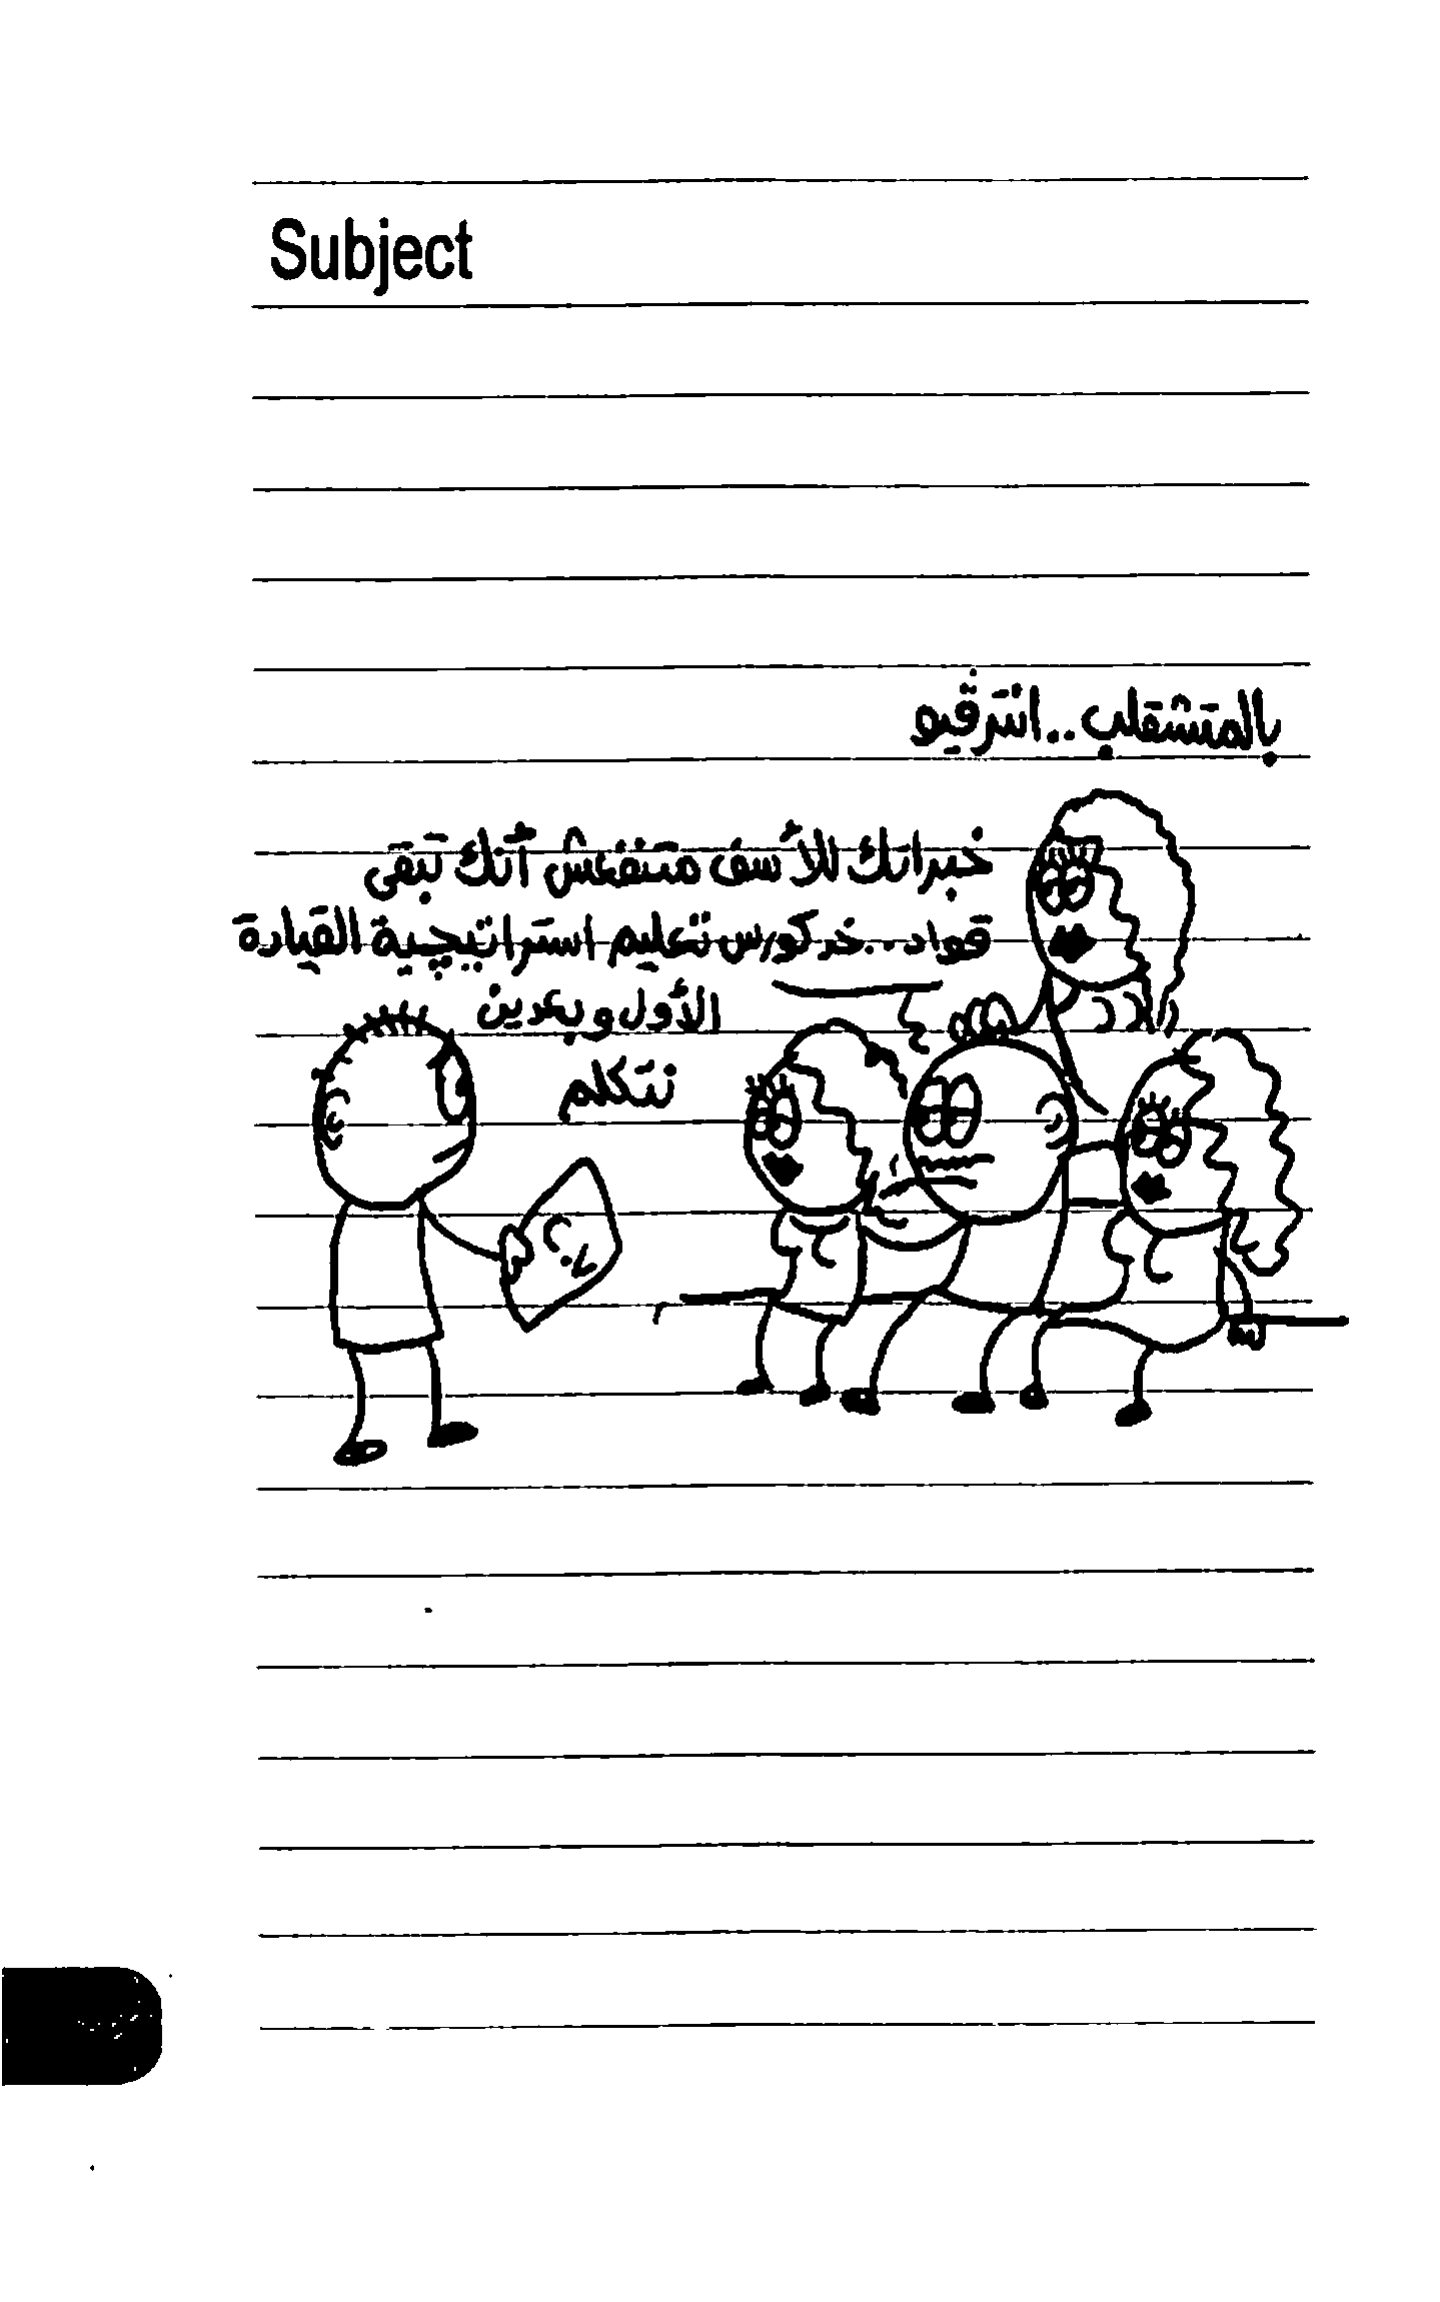 Subject
بالمتشقلب..انترڤيو
خبراتك للأسف متنفعش أنك تبقى
قواد..خد كورس تعليم استراتيچية القيادة
الأول وبعدين
نتكلم
C.V